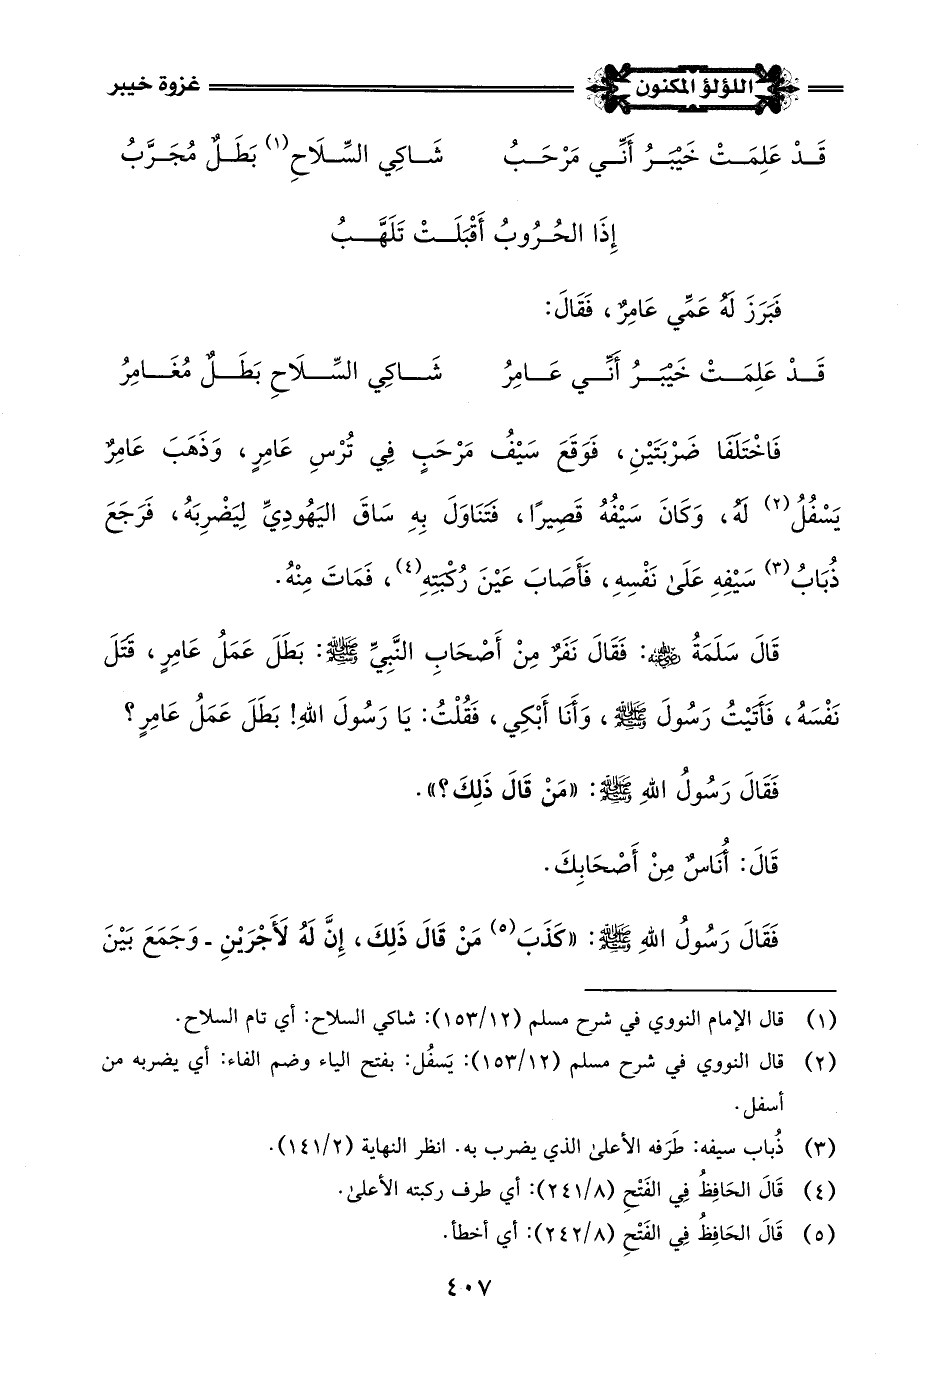 اللؤلؤ المكنون غزوة خيبر
قَدْ عَلِمَتْ خَيْبَرُ أَنِّي مَرْحَبُ شَاكِي السِّلَاحِ(١) بَطَلٌ مُجَرَّبُ
إِذَا الحُرُوبُ أَقْبَلَتْ تَلَهَّبُ
فَبَرَزَ لَهُ عَمِّي عَامِرٌ، فَقَالَ:
قَدْ عَلِمَتْ خَيْبَرُ أَنِّي عَامِرُ شَاكِي السِّلَاحِ بَطَلٌ مُغَامِرُ
فَاخْتَلَفَا ضَرْبَتَيْنِ، فَوَقَعَ سَيْفُ مَرْحَبٍ فِي تُرْسِ عَامِرٍ، وَذَهَبَ عَامِرٌ
يَسْفُلُ(٢) لَهُ، وَكَانَ سَيْفُهُ قَصِيرًا، فَتَنَاوَلَ بِهِ سَاقَ اليَهُودِيِّ لِيَضْرِبَهُ، فَرَجَعَ
ذُبَابُ(٣) سَيْفِهِ عَلَىٰ نَفْسِهِ، فَأَصَابَ عَيْنَ رُكْبَتِهِ(٤)، فَمَاتَ مِنْهُ.
قَالَ سَلَمَةُ رضي الله عنه: فَقَالَ نَفَرٌ مِنْ أَصْحَابِ النَّبِيِّ ﷺ: بَطَلَ عَمَلُ عَامِرٍ، قَتَلَ
نَفْسَهُ، فَأَتَيْتُ رَسُولَ ﷺ، وَأَنَا أَبْكِي، فَقُلْتُ: يَا رَسُولَ اللهِ! بَطَلَ عَمَلُ عَامِرٍ؟
فَقَالَ رَسُولُ اللهِ ﷺ: «مَنْ قَالَ ذَلِكَ؟».
قَالَ: أُنَاسٌ مِنْ أَصْحَابِكَ.
فَقَالَ رَسُولُ اللهِ ﷺ: «كَذَبَ(٥) مَنْ قَالَ ذَلِكَ، إِنَّ لَهُ لَأَجْرَيْنِ - وَجَمَعَ بَيْنَ
(١) قال الإمام النووي في شرح مسلم (١٥٣/١٢): شاكي السلاح: أي تام السلاح.
(٢) قال النووي في شرح مسلم (١٥٣/١٢): يَسفُل: بفتح الياء وضم الفاء: أي يضربه من
أسفل.
(٣) ذُباب سيفه: طَرَفه الأعلىٰ الذي يضرب به. انظر النهاية (١٤١/٢).
(٤) قَالَ الحَافِظُ فِي الفَتْحِ (٢٤١/٨): أي طرف ركبته الأعلىٰ.
(٥) قَالَ الحَافِظُ فِي الفَتْحِ (٢٤٢/٨): أي أخطأ.
٤٠٧